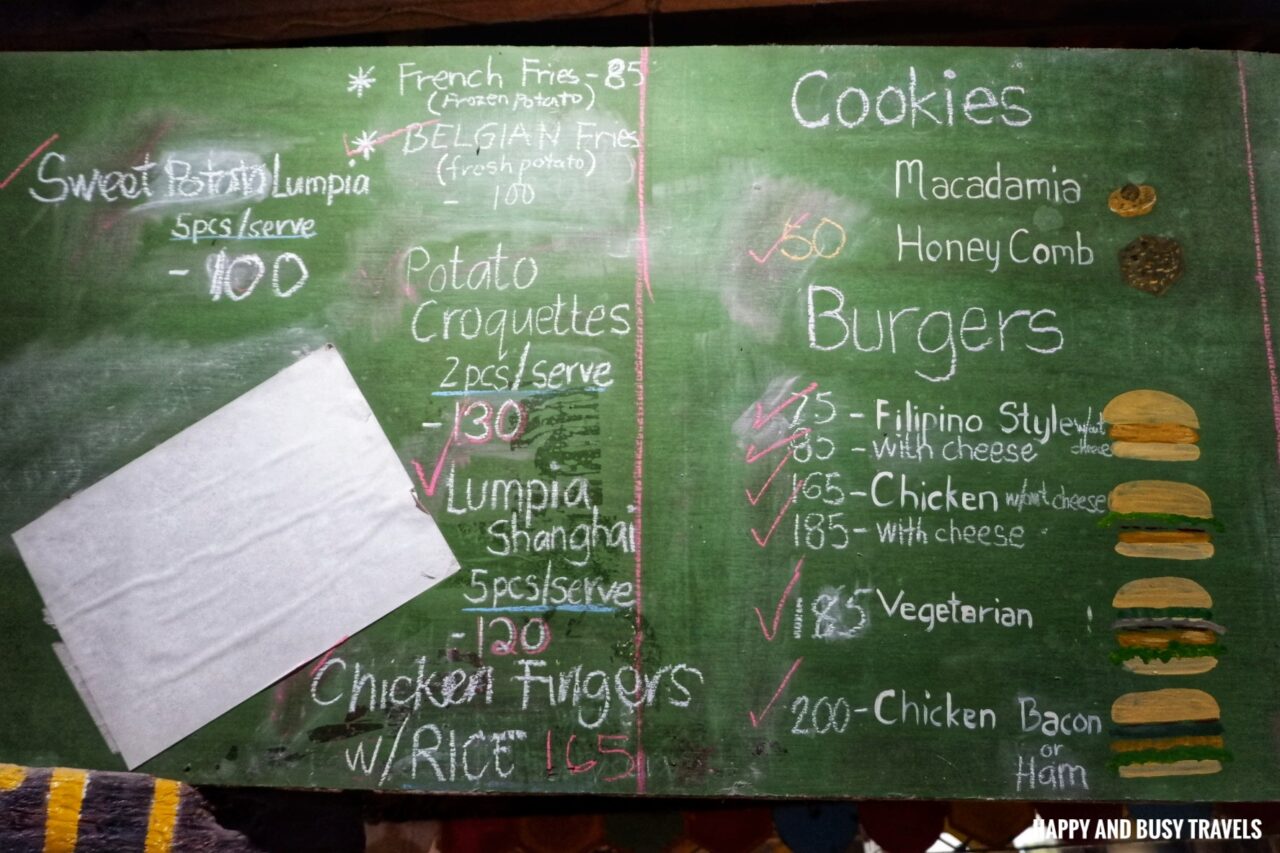 Sweet Potato Lumpia
5pcs/serve
- 100
* French Fries - 85
(Frozen Potato)
* BELGIAN Fries
(fresh potato)
- 100
Potato
Croquettes
2pcs/serve
- 130
Lumpia
Shanghai
5pcs/serve
- 120
Chicken Fingers
w/RICE 165
Cookies
Macadamia
50 Honey Comb
Burgers
75 - Filipino Style w/out cheese
85 - with cheese
165 - Chicken w/out cheese
185 - with cheese
185 Vegetarian
200 - Chicken Bacon
or
Ham
HAPPY AND BUSY TRAVELS